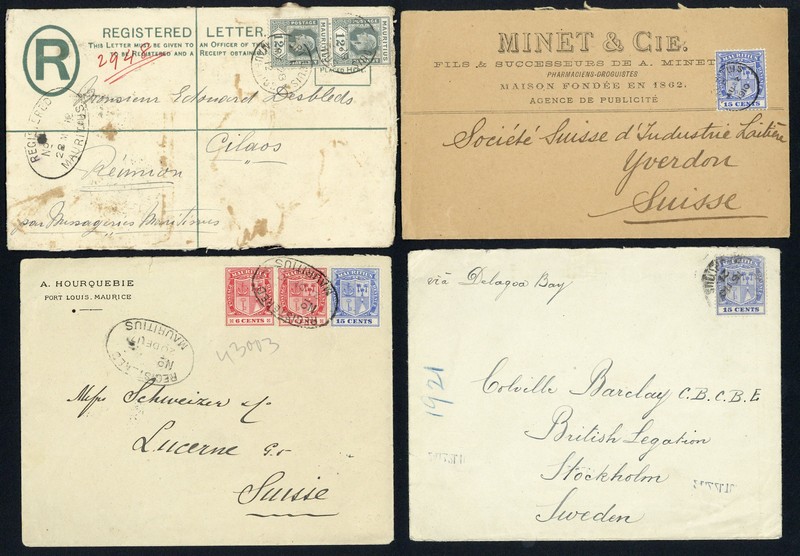 REGISTERED LETTER.
THIS LETTER MUST BE GIVEN TO AN OFFICER OF THE
BE REGISTERED AND A RECEIPT OBTAINED
R
2942
POSTAGE
MAURITIUS
MAURITIUS
REGISTERED
MAURITIUS
Monsieur Edouard
Cilaos
Réunion
par Messageries Maritimes
MINET & CIE.
FILS & SUCCESSEURS DE A. MINET
PHARMACIENS-DROGUISTES
MAISON FONDÉE EN 1862.
AGENCE DE PUBLICITÉ
MAURITIUS
15 CENTS
Société Suisse d'Industrie Laitière
Yverdon
Suisse
A. HOURQUEBIE
PORT LOUIS, MAURICE
MAURITIUS
6 CENTS
MAURITIUS
15 CENTS
REGISTERED
MAURITIUS
REGISTERED
No
MAURITIUS
43003
Schweizer
Lucerne
Suisse
via Delagoa Bay
15 CENTS
1921
Colville Barclay C.B. C.B.E
British Legation
Stockholm
Sweden